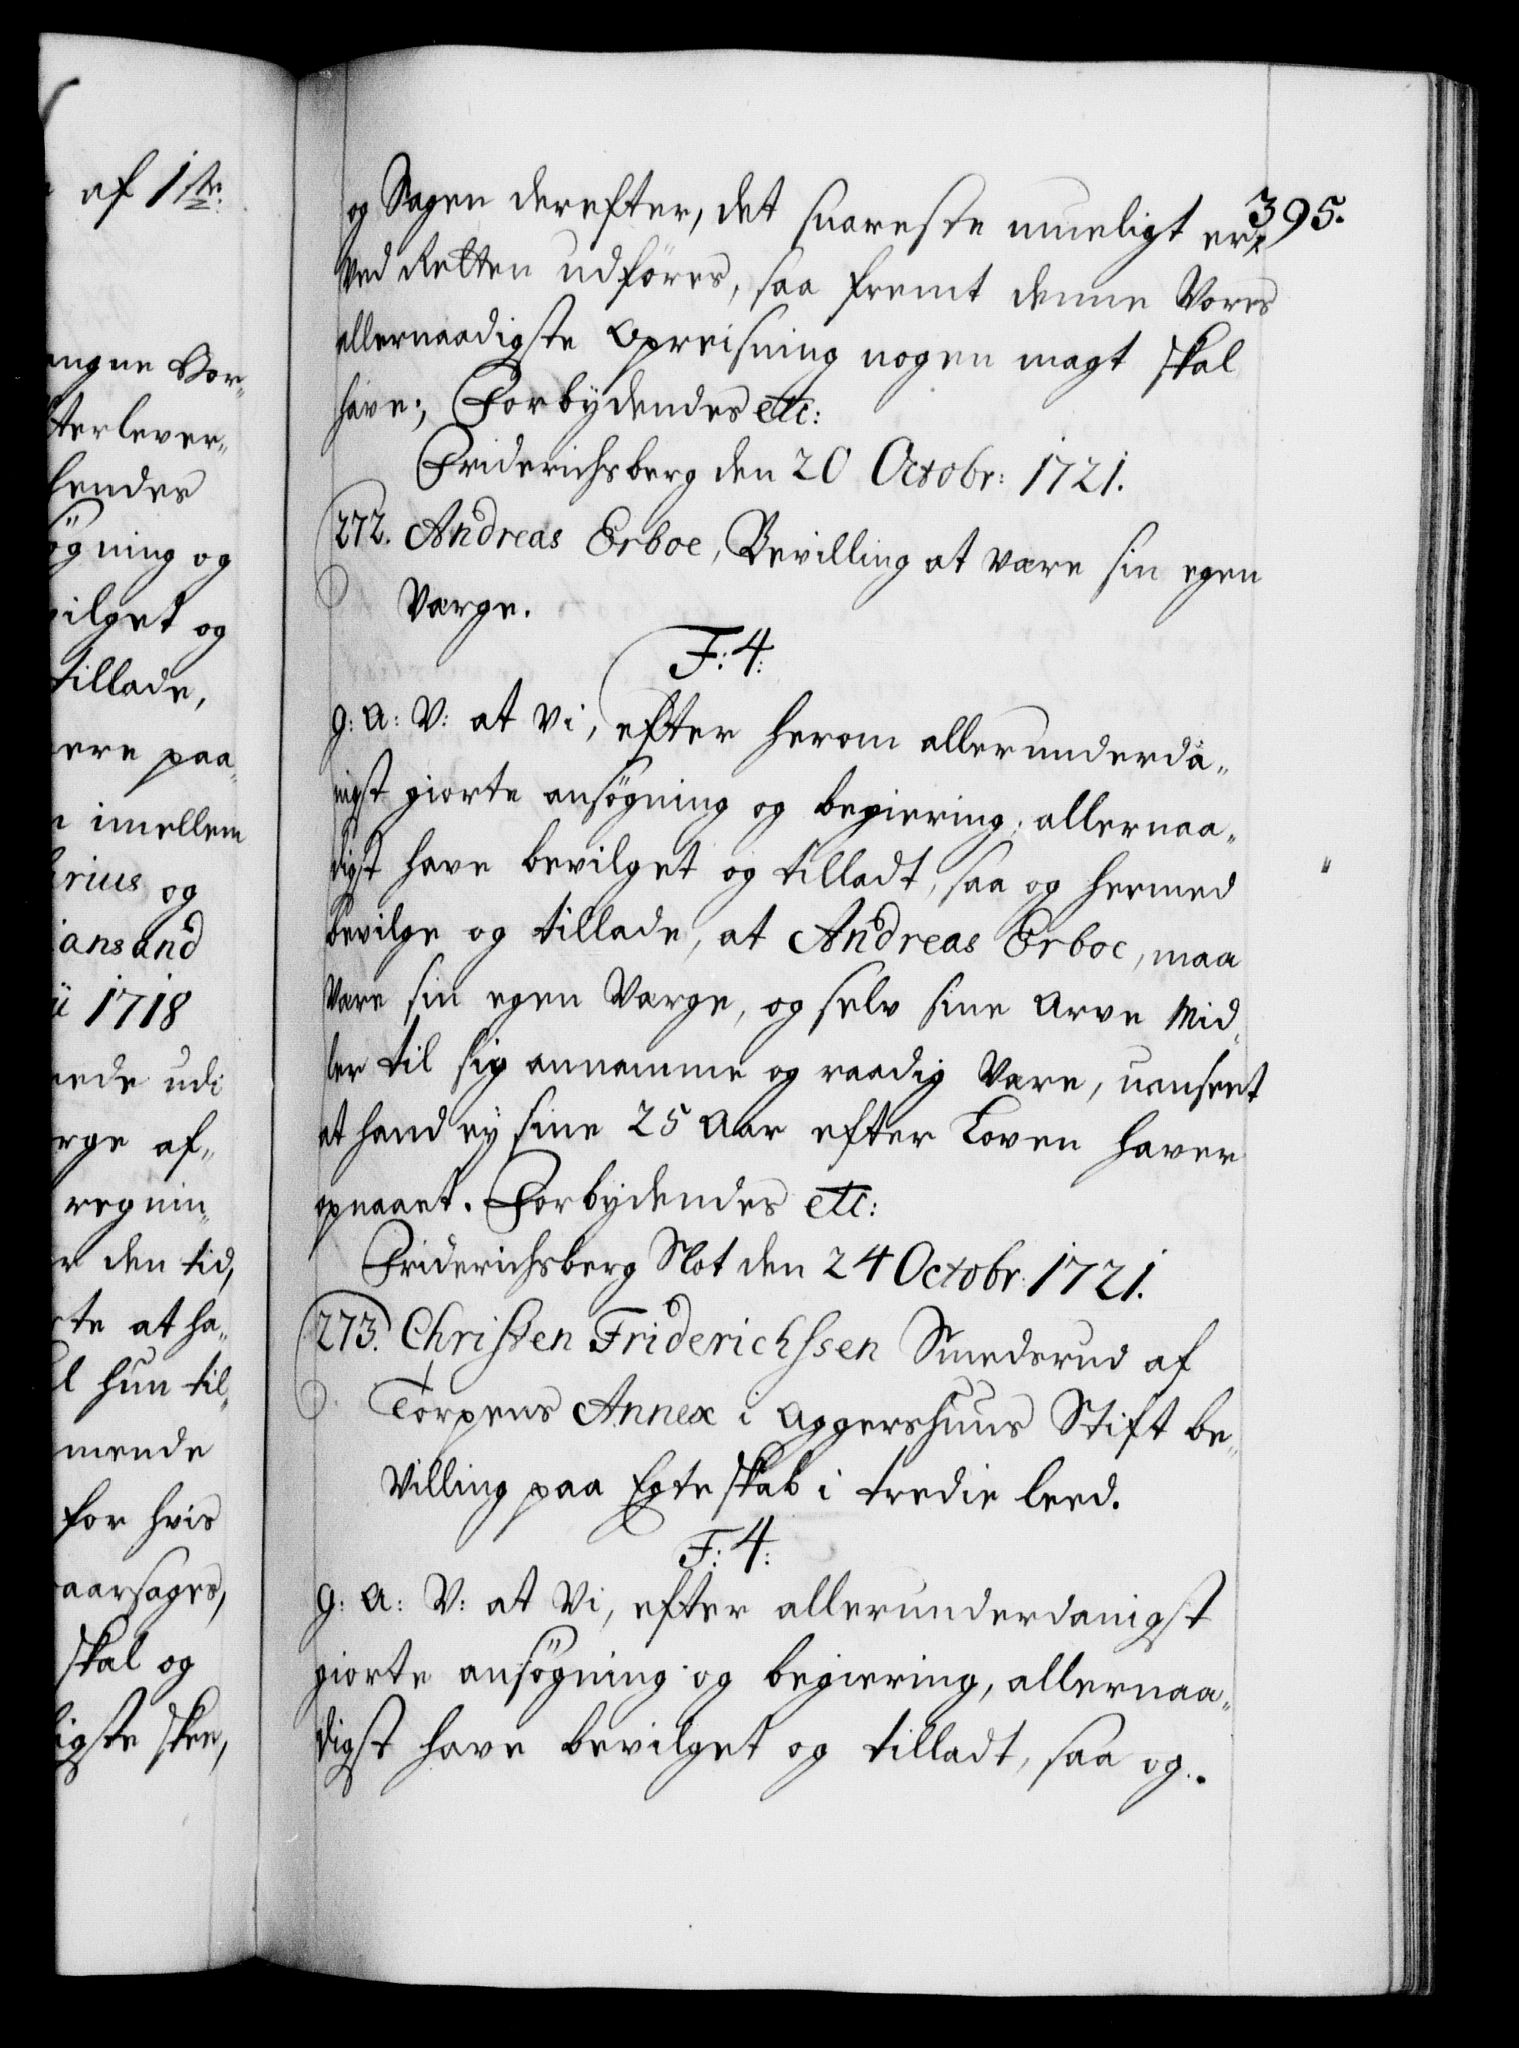 af 1ste
engne Bor-
fterlever-
hendes
søgning og
vilget og
tillade,
ere paa-
n imellem
hrius og
iansand
ii 1718
ede udi
rge af-
regnin-
r den tid,
te at ha-
l hun til-
mende
for hvis
aarsages,
skal og
igste skee,
395.
og Sagen derefter, det snareste mueligt er,
ved Retten udføres, saa fremt denne Vores
allernaadigste Opreisning nogen magt skal
have; Forbydendes etc:
Friderichsberg den 20 Octobr: 1721.
272. Andreas Erboe, Bevilling at være sin egen
Værge.
F: 4:
G: A: V: at Vi, efter herom allerunderda-
nigst giorte ansøgning og begiering, allernaa-
digst have bevilget og tilladt, saa og hermed
bevilge og tillade, at Andreas Erboe, maa
være sin egen Værge, og selv sine Arve Mid-
ler til sig annamme og raadig være, uanseet
at hand ey sine 25 Aar efter Loven haver
opnaaet. Forbydendes etc:
Friderichsberg Slot den 24 Octobr: 1721.
273. Christen Friderichssen Smedsrud af
Torpens Annex i Aggershuus Stift be-
villing paa Egteskab i tredie leed.
F: 4:
G: A: V: at Vi, efter allerunderdanigst
giorte ansøgning og begiering, allernaa-
digst have bevilget og tilladt, saa og